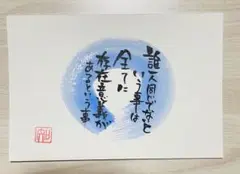 誰一人同じでないと
いう事は
全てに
存在意義が
あるという事